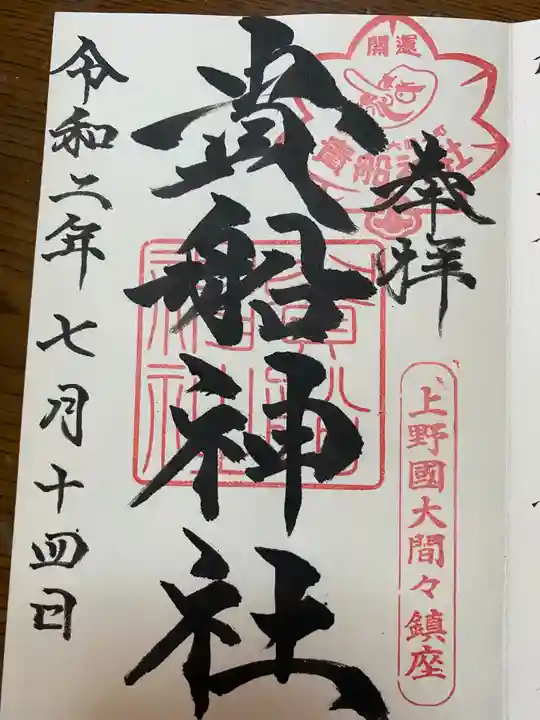 開運
貴船神社
奉拝
上野國大間々鎮座
貴船神社
貴船神社
令和二年七月十四日